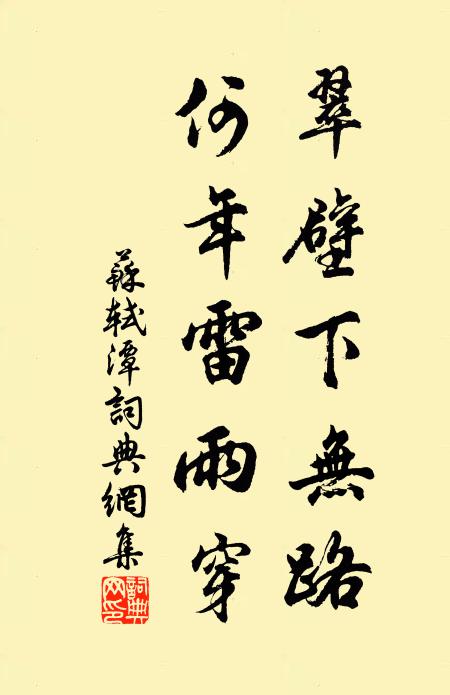 翠壁下無路
何年雷雨穿
蘇軾潭詞典網集
詞典網印